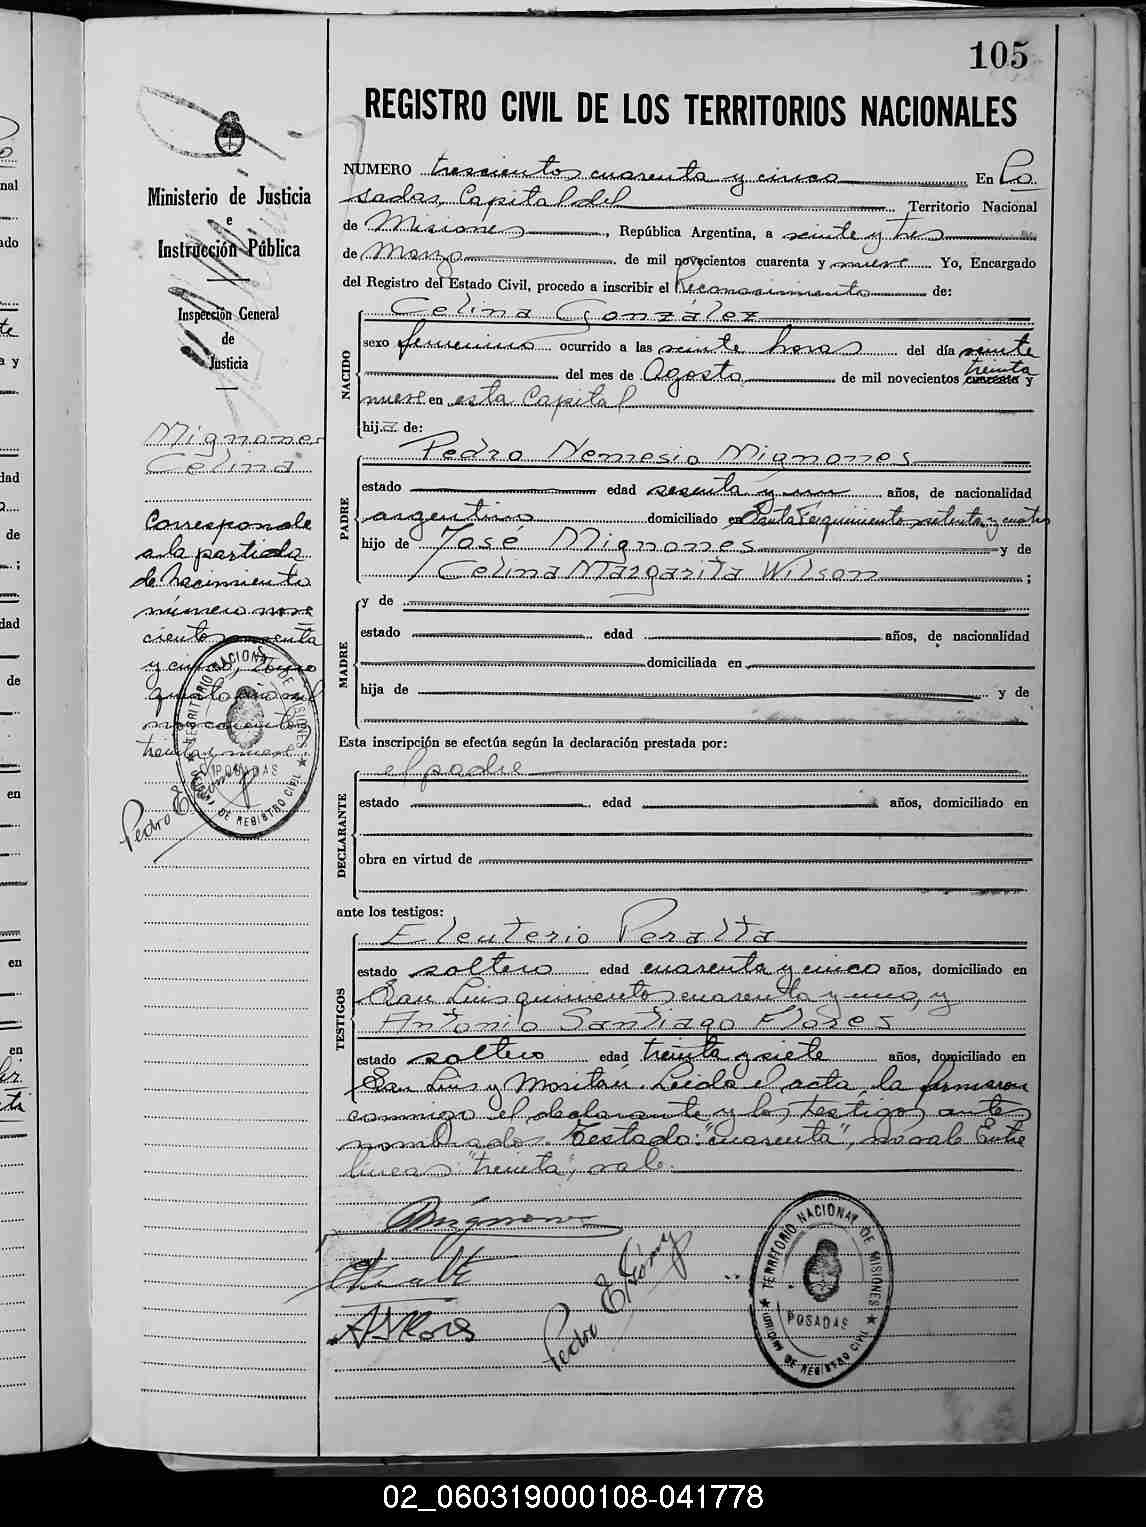 105
REGISTRO CIVIL DE LOS TERRITORIOS NACIONALES
Ministerio de Justicia
e
Instrucción Pública
Inspección General
de
Justicia
Mignones
Celina
Corresponde
a la partida
de Nacimiento
número nove
cientos noventa
y cinco, tomo
mil
novecientos
treinta y nueve
TERRITORIO NACIONAL DE MISIONES
POSADAS
OFICINA DE REGISTRO CIVIL
Pedro E.
NUMERO trescientos cuarenta y cinco En Po
sadas, Capital del Territorio Nacional
de Misiones, República Argentina, a veinte y tres
de Marzo de mil novecientos cuarenta y nueve Yo, Encargado
del Registro del Estado Civil, procedo a inscribir el Reconocimiento de:
NACIDO
Celina González
sexo femenino ocurrido a las veinte horas del día veinte
treinta
del mes de Agosto de mil novecientos cuarenta y
nueve en esta Capital
hija de:
PADRE
Pedro Nemesio Mignones
estado edad sesenta y un años, de nacionalidad
argentino domiciliado en Santa Fe quinientos setenta y cuatro
hijo de José Mignones y de
Celina Margarita Wilson;
MADRE
y de
estado edad años, de nacionalidad
domiciliada en
hija de y de
Esta inscripción se efectúa según la declaración prestada por:
DECLARANTE
el padre
estado edad años, domiciliado en
obra en virtud de
ante los testigos:
TESTIGOS
Eleuterio Peralta
estado soltero edad cuarenta y cinco años, domiciliado en
San Luis quinientos cuarenta y uno, y
Antonio Santiago Flores
estado soltero edad treinta y siete años, domiciliado en
San Luis y Moritán. Leida el acta, la firmaron
conmigo el declarante y los testigos antes
nombrados. Testado: "cuarenta", no vale. Entre
lineas: "treinta", vale.
Mignones
ASFlores
Pedro E.
TERRITORIO NACIONAL DE MISIONES
POSADAS
OFICINA DE REGISTRO CIVIL
02_060319000108-041778